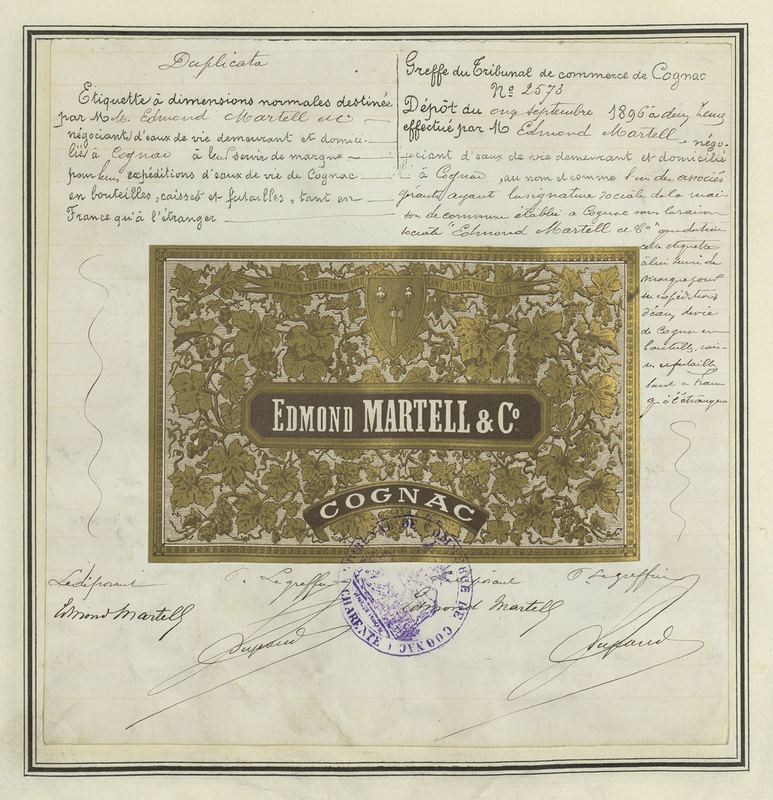 Duplicata
Etiquette à dimensions normales destinée
par M M. Edmond Martell etc
négociant d'eaux de vie demeurant et domici-
lié à Cognac à leur servir de marque
pour leurs expéditions d'eaux de vie de Cognac
en bouteilles, caisses et futailles, tant en
France qu'à l'étranger
Greffe du Tribunal de commerce de Cognac
No 2573
Dépôt du onze septembre 1896 à deux heures
effectué par M Edmond Martell négo-
ciant d'eaux de vie demeurant et domicilié
à Cognac, au nom et comme l'un des associés
gérants ayant la signature sociale de la mai
son de commerce établie à Cognac sous la raison
sociale "Edmond Martell et Co"
cette étiquette
à leur servir de
marque pour
les expéditions
d'eaux de vie
de Cognac en
bouteilles, cais-
ses et futailles
tant en France
qu'à l'étranger
MAISON FONDÉE EN MIL
CENT QUATRE VINGT SEIZE
EDMOND MARTELL & Co
COGNAC
TRIBUNAL DE COMMERCE DE COGNAC (CHARENTE)
Le déposant P. Le greffier
Edmond Martell
Le déposant P. Le greffier
Edmond Martell